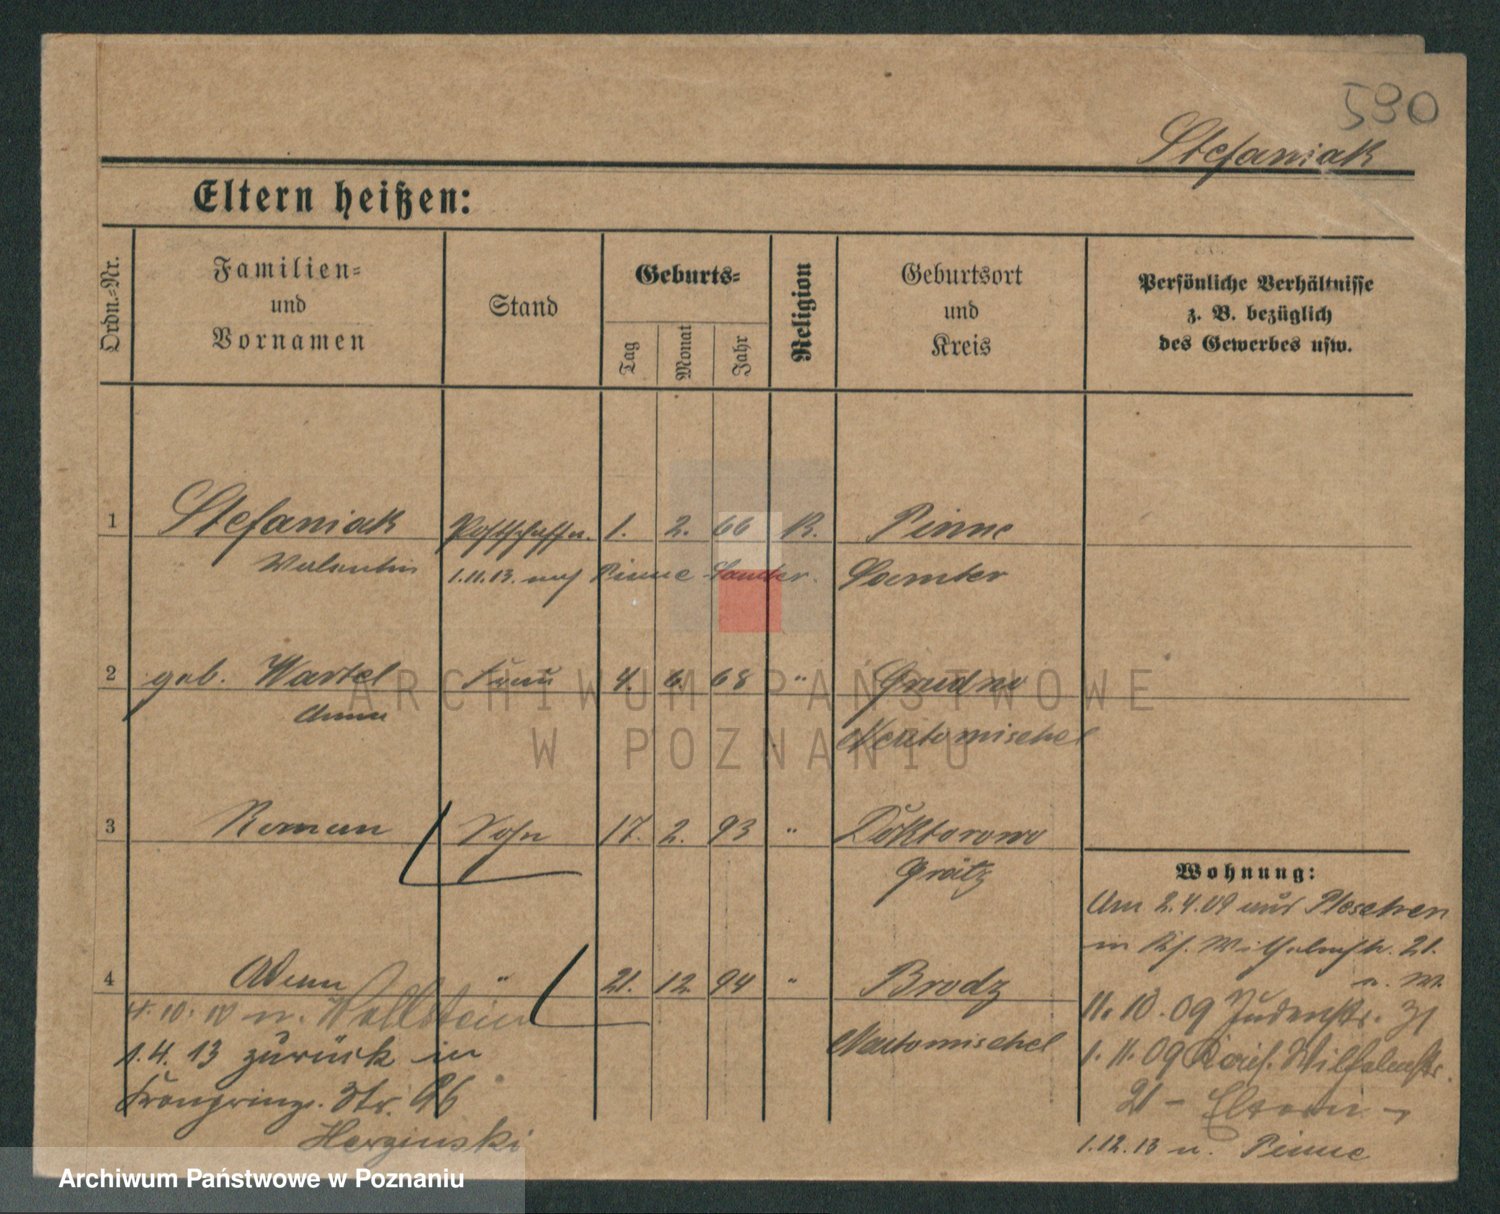 590
Stefaniak
Eltern heißen:
Ordn.-Nr.
Familien- und Vornamen
Stand
Geburts-
Tag
Monat
Jahr
Religion
Geburtsort und Kreis
Persönliche Verhältnisse
z. B. bezüglich
des Gewerbes usw.
1 Stefaniak Postschaffn. 1. 2. 66 K. Pinne
Valentin 1.11.13. auf Pinne Samter. Samter
2 geb. Wartel Frau 4. 6. 68 " Grudno
Anna Neutomischel
3 Roman Sohn 17. 2. 93 " Doktorowo
Grätz
4 Adam " 21. 12. 94 " Brody
Neutomischel
4.10.10 n. Wollstein
1.4.13 zurück in
Kronprinz. Str. 96
Herzinski
Wohnung:
Am 2.4.09 aus Pleschen
in Wilhelmstr. 21.
11.10.09 Judenstr. 31
1.11.09 Kais. Wilhelmstr.
21 - Eltern -
1.12.13 n. Pinne
ARCHIWUM PAŃSTWOWE
W POZNANIU
Archiwum Państwowe w Poznaniu